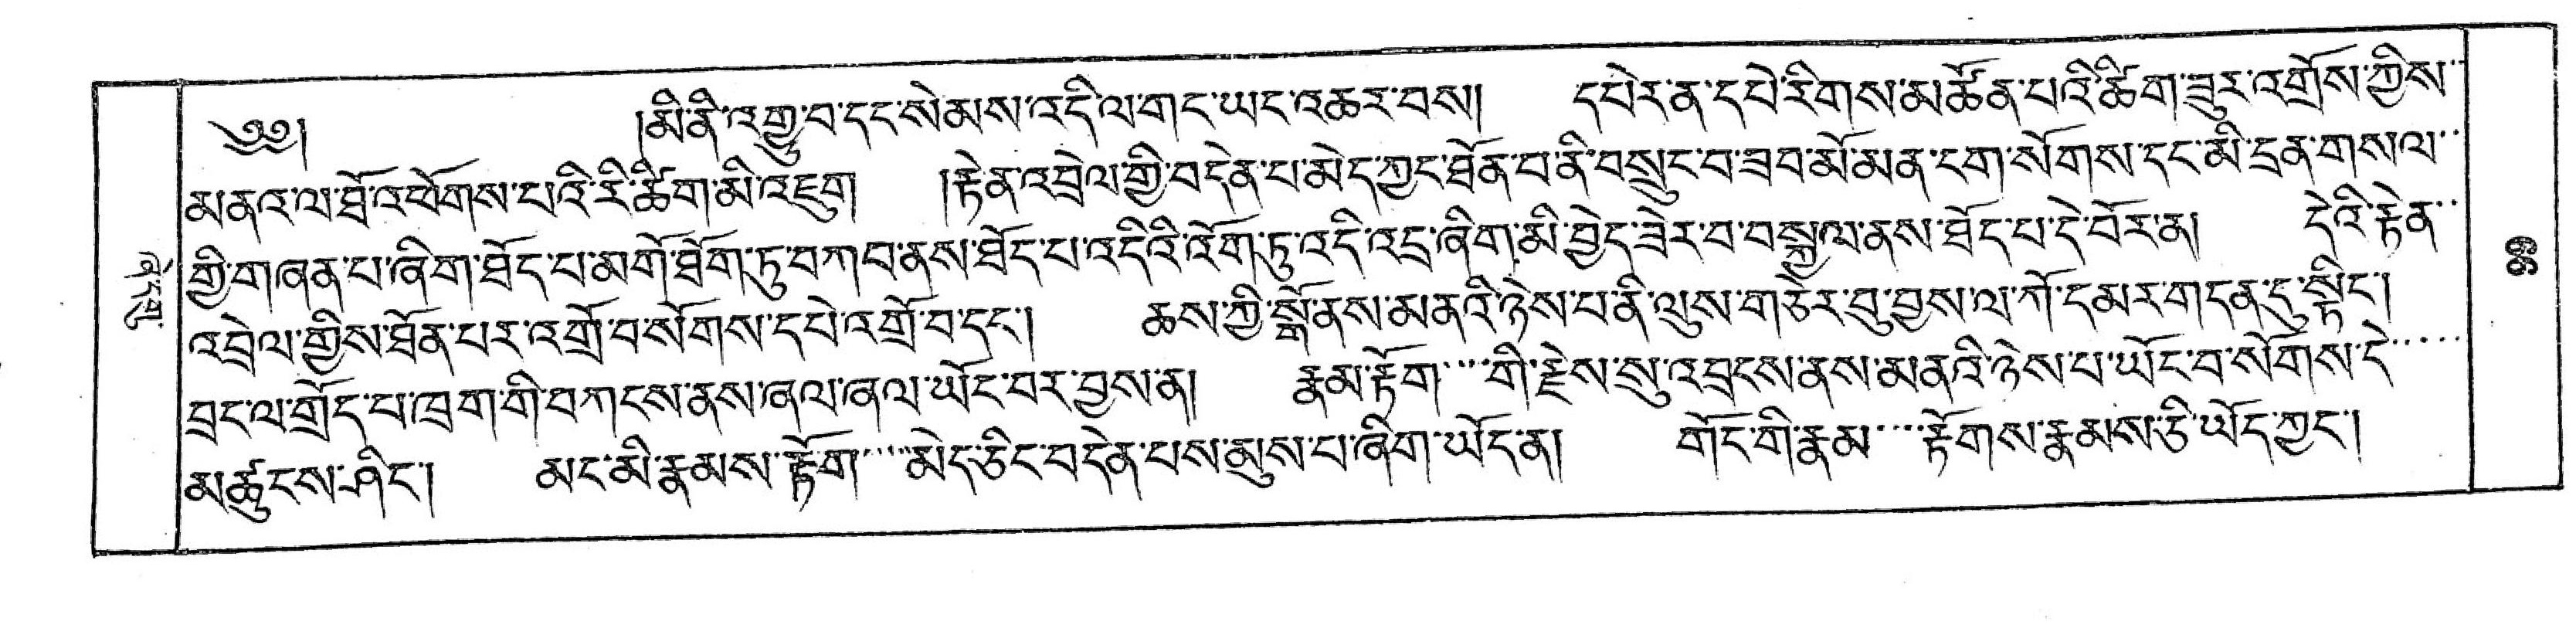 ༄༅། །མི་ནི་འགྱུ་བ་དང་སེམས་འདི་ལ་གང་ཡང་འཆར་བས། དཔེར་ན་དཔེ་རིགས་མཚོན་པའི་ཚིག་ཟུར་འགྲོས་ཀྱིས་
མནའ་ལ་ཐོ་འཕོགས་པའི་རི་ཚིག་མི་འཇུག །རྟེན་འབྲེལ་གྱི་བདེན་པ་མེད་ཀྱང་ཐོན་བ་ནི་བསྲུང་བ་ཟབ་མོ་མན་ངག་སོགས་དང་མི་དྲན་གསལ་
གྱི་གཞན་པ་ཞིག་ཐོད་པ་མགོ་ཐོག་ཏུ་བཀབ་ནས་ཐོད་པ་འདིའི་འོག་ཏུ་འདི་འདྲ་ཞིག་མི་བྱེད་ཟེར་བ་བསྐྱལ་ནས་ཐོད་པ་དེ་བོར་ན། དེའི་རྟེན་
འབྲེལ་གྱིས་ཐོན་པར་འགྲོ་བ་སོགས་དཔེ་འགྲོ་བ་དང་། ཆས་ཀྱི་སྒོ་ནས་མནའི་ཉེས་པ་ནི་ལུས་གཅེར་བུ་བྱས་ལ་ཀོ་དམར་གདན་དུ་སྟིང་།
བྲང་ལ་གྲོད་པ་ཁྲག་གི་བཀང་ས་ནས་ཞལ་ཞལ་ཡོང་བར་བྱས་ན། རྣམ་རྟོག་་་་གི་རྗེས་སུ་འབྲངས་ནས་མནའི་ཉེས་པ་ཡོང་བ་སོགས་དེ་་་་་
མཚུངས་ཤིང་། མང་མི་རྣམས་རྟོག་་་་་མེད་ཅིང་བདེན་པས་མུས་པ་ཞིག་ཡོད་ན། གོང་གི་རྣམ་་་་རྟོགས་རྣམས་ཅི་ཡོད་ཀྱང་།